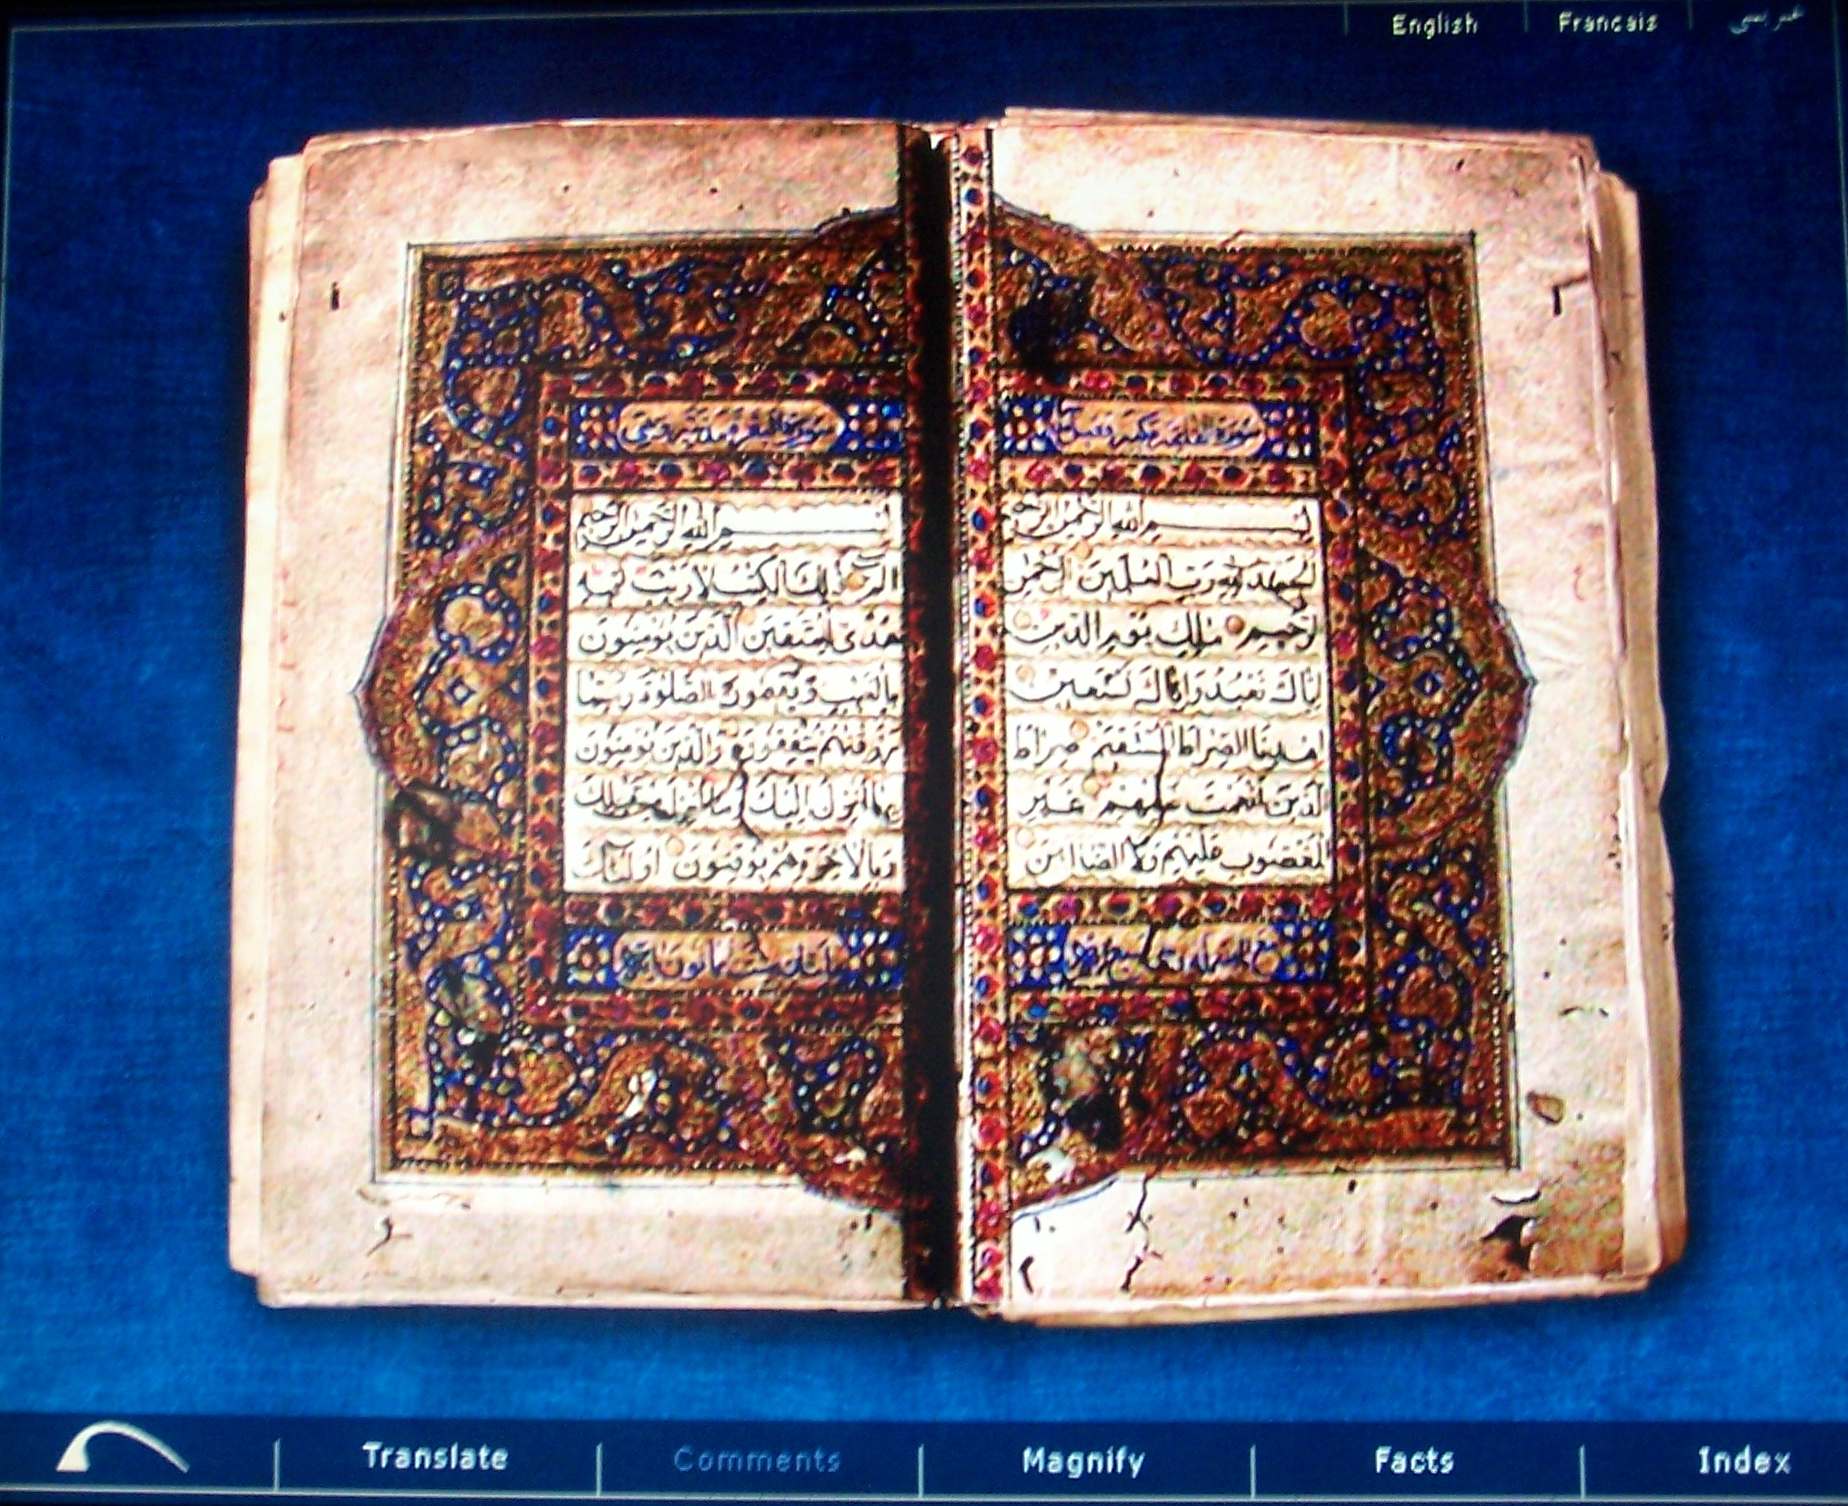 English
Francais
عربي
سورة الفاتحة مكية وقيل
بسم الله الرحمن الرحيم
الحمد لله رب العلمين الرحمن
الرحيم ملك يوم الدين
اياك نعبد واياك نستعين
اهدنا الصراط المستقيم صراط
الذين انعمت عليهم غير
المغضوب عليهم ولا الضالين
سورة البقرة مدنية وهي
بسم الله الرحمن الرحيم
الم ذلك الكتب لا ريب فيه
هدى للمتقين الذين يؤمنون
بالغيب ويقيمون الصلوة ومما
رزقنهم ينفقون والذين يؤمنون
بما انزل اليك وما انزل من قبلك
وبالاخرة هم يوقنون اولئك
Translate
Comments
Magnify
Facts
Index